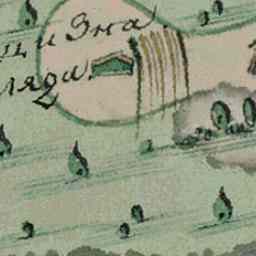 ци Зна
ляди.